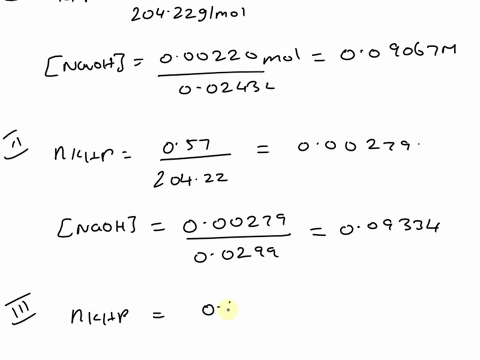 204.22g/mol
[NaOH] = 0.00220 mol / 0.0243L = 0.09067M
II) nKHP = 0.57 / 204.22 = 0.00279.
[NaOH] = 0.00279 / 0.0299 = 0.09334
III) nKHP = 0.